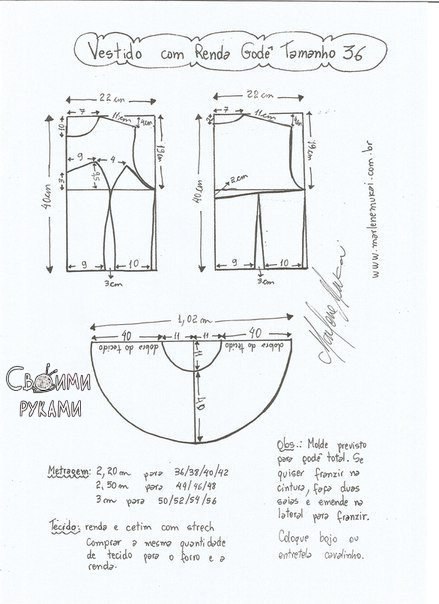 Vestido com Renda Godê Tamanho 36
22cm
22cm
7
11cm
4cm
7
11cm
10
19cm
19cm
40cm
40cm
9
4
9,5
3
2cm
9
10
9
10
3cm
3cm
www.marlenemukai.com.br
1,02m
40
11
11
40
dobra do tecido
11
dobra do tecido
40
Своими
руками
Metragem: 2,20m para 36/38/40/42
2,50m para 44/46/48
3cm para 50/52/54/56
Tecido: renda e cetim com strech
Comprar a mesma quantidade
de tecido para o forro e a
renda.
Obs.: Molde previsto
para godê total. Se
quiser franzir na
cintura, faça duas
saias e emende na
lateral para franzir.
Coloque bojo ou
entretela cavalinho.